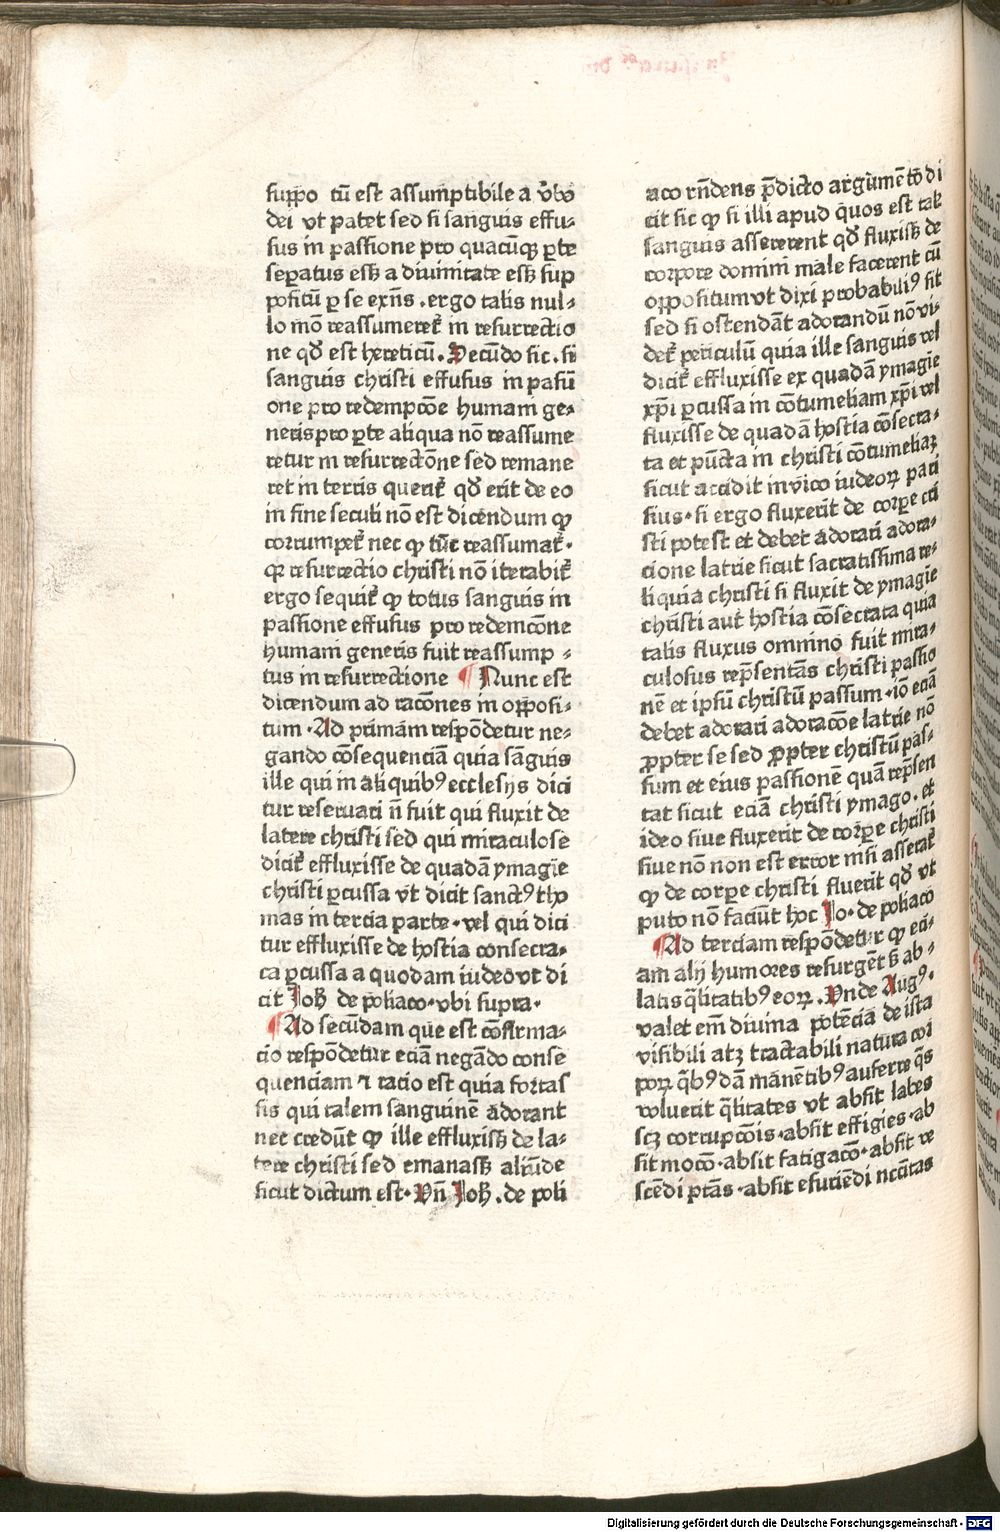 fuppo tū est assumptibile a v̄bo
dei vt patet sed si sanguis effu⸗
sus in passione pro quacūqꝫ ꝑte
seꝑatus essꝫ a diuinitate essꝫ sup
positū ꝑ se exn̄s . ergo talis nul⸗
lo mō reassumeret᷑ in resurrectio
ne qd̄ est hereticū. Secūdo sic. si
sanguis christi effusus in pasū
one pro redempcōe humani ge⸗
neris pro ꝑte aliqua nō reassume
retur in resurrectōne sed remane
ret in terris querit᷑ qd̄ erit de eo
in fine seculi nō est dicendum ꝙ
corrumpet᷑ nec ꝙ tūc reassumat᷑.
qꝛ resurrectio christi nō iterabit᷑
ergo sequit᷑ ꝙ totus sanguis in
passione effusus pro redemcōne
humani generis fuit reassump ⸗
tus in resurrectione ¶ Nunc est
dicendum ad racōnes in opposi⸗
tum . Ad primam respōdetur ne⸗
gando cōsequenciā quia sanguis
ille qui in aliquibꝰ ecclesijs dici
tur reseruari n̄ fuit qui fluxit de
latere christi sed qui miraculose
dicit᷑ effluxisse de quadā ymagīe
christi ꝑcussa vt dicit sanctꝰ tho
mas in tercia parte . vel qui dici
tur effluxisse de hostia consecra⸗
ca ꝑcussa a quodam iudeo vt di
cit Joh̄ de poliaco . vbi supra .
¶ Ad secūdam que est cōfirma⸗
cio respōdetur eciā negādo conse
quenciam ⁊ racio est quia fortas
sis qui talem sanguinē adorant
nec credūt ꝙ ille effluxisꝫ de la⸗
tere christi sed emanassꝫ aliūde
sicut dictum est . Vn̄ Joh̄ . de poli
aco rn̄dens p̄dicto argumēto di
cit sic ꝙ si illi apud quos est talis
sanguis assererent qd̄ fluxissꝫ de
corpore domini male facerent cū
oppositum vt dixi probabiliꝰ sit
sed si ostendāt adorandū nō vi⸗
det᷑ periculū quia ille sanguis vel
dicit᷑ effluxisse ex quadā ymagīe
xp̄i ꝑcussa in cōtumeliam xp̄i vel
fluxisse de quadā hostia cōsecra⸗
ta et pūcta in christi cōtumeliaꝫ
sicut accidit in vico iudeoꝝ pari
sius . si ergo fluxerit de corꝑe cri
sti potest et debet adorari adora⸗
cione latrie sicut sacratissima re⸗
liquia christi si fluxit de ymagīe
christi aut hostia cōsecrata quia
talis fluxus omnino fuit mira⸗
culosus rep̄sentās christi passio
nē et ipsū christum passum . iō eciā
debet adorari adoracōe latrie nō
ꝓpter se sed ꝓpter christū pas⸗
sum et eius passionē quā rep̄sen
tat sicut eciā christi ymago . et
ideo siue fluxerit de corꝑe christi
siue nō non est error nisi asserat᷑
ꝙ de corꝑe christi fluerit qd̄ vt
puto nō faciūt hoc Jo . de poliaco
¶ Ad terciam respōdetur ꝙ eci⸗
am alij humores resurgēt s̄ ab ⸗
latis q̄litatibꝰ eoꝝ . Vnde Augꝰ.
valet em̄ diuina potēcia de ista
visibili atqꝫ tractabili natura cor
poꝝ q̄bꝰdā manētibꝰ auferre q̄s
voluerit q̄litates vt absit labes
scꝫ corrupcōis . absit effigies . ab
sit mocō . absit fatigacō . absit ve
scēdi ptās . absit esuriēdi nccītas